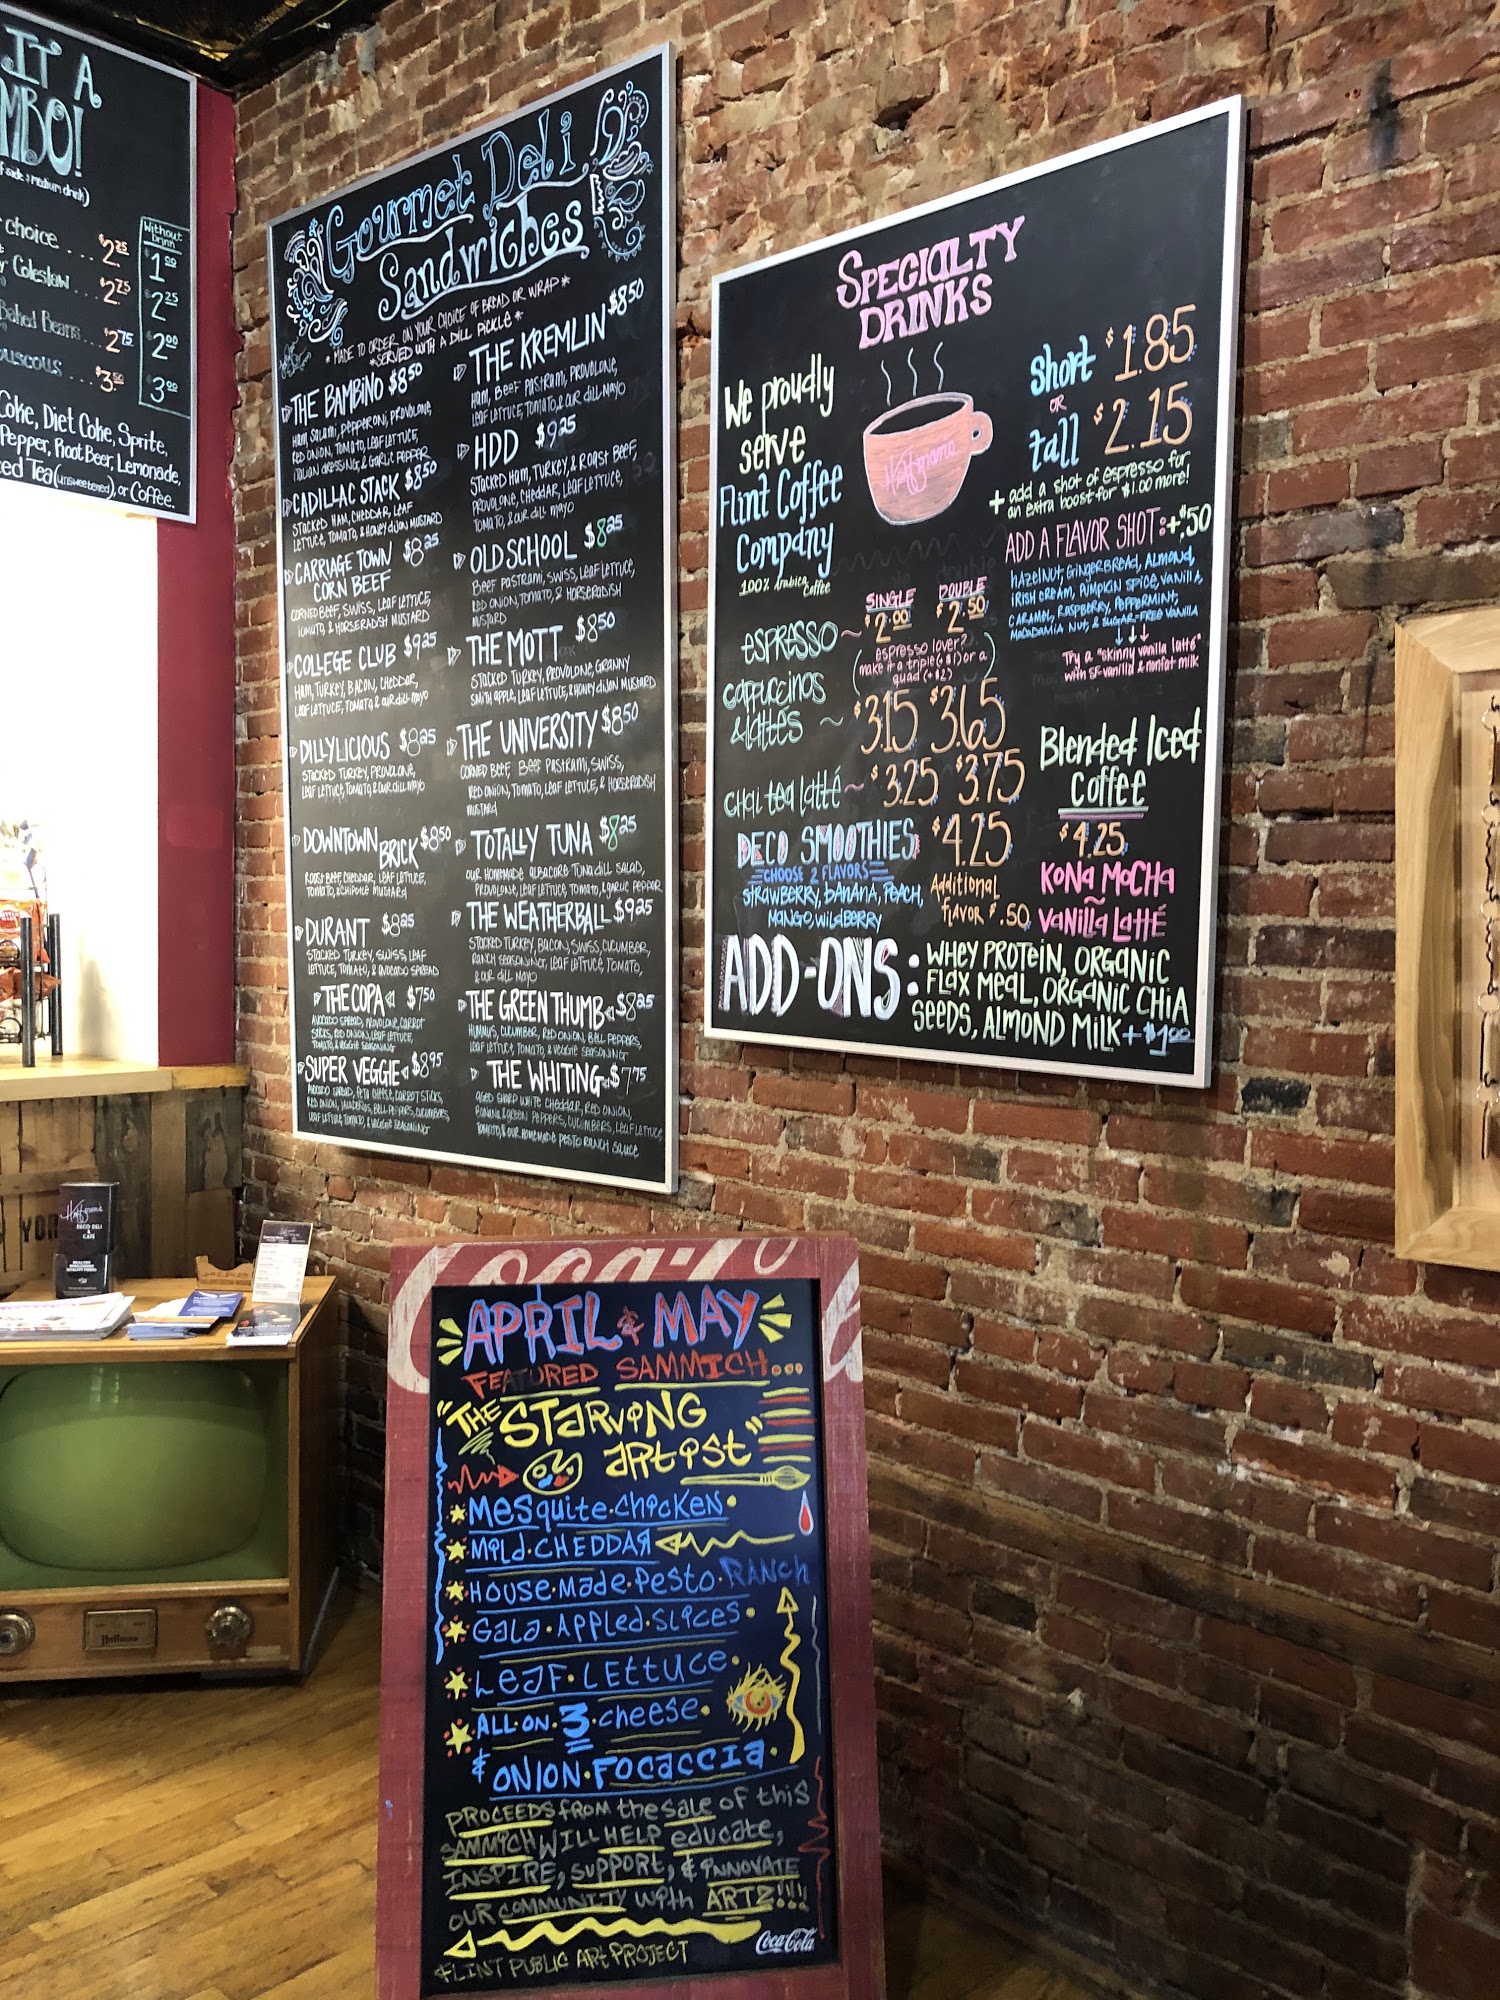 IT A
MBO!
side & medium drink)
Without
Drink
choice . . . $2.25 $1.00
Coleslaw . . . $2.75 $2.25
Baked Beans $2.75 $2.00
couscous . . . $3.50 $3.00
Coke, Diet Coke, Sprite,
Pepper, Root Beer, Lemonade,
Tea (unsweetened), or Coffee.
Gourmet Deli
Sandwiches
*MADE TO ORDER ON YOUR CHOICE OF BREAD OR WRAP*
*SERVED WITH A DILL PICKLE*
THE BAMBINO $8.50
HAM, SALAMI, PEPPERONI, PROVOLONE,
RED ONION, TOMATO, LEAF LETTUCE,
ITALIAN DRESSING, & GARLIC PEPPER
CADILLAC STACK $8.50
STACKED HAM, CHEDDAR, LEAF
LETTUCE, TOMATO, & HONEY DIJON MUSTARD
CARRIAGE TOWN $8.25
CORN BEEF
CORNED BEEF, SWISS, LEAF LETTUCE,
TOMATO, & HORSERADISH MUSTARD
COLLEGE CLUB $9.25
HAM, TURKEY, BACON, CHEDDAR,
LEAF LETTUCE, TOMATO & OUR DILL MAYO
DILLYLICIOUS $8.25
STACKED TURKEY, PROVOLONE,
LEAF LETTUCE, TOMATO, & OUR DILL MAYO
DOWNTOWN
BRICK $8.50
ROAST BEEF, CHEDDAR, LEAF LETTUCE,
TOMATO, & CHIPOTLE MUSTARD
DURANT $8.25
STACKED TURKEY, SWISS, LEAF
LETTUCE, TOMATO, & AVOCADO SPREAD
THE COPA $7.50
AVOCADO SPREAD, PROVOLONE, CARROT
STICKS, RED ONION, LEAF LETTUCE,
TOMATO, & VEGGIE SEASONING
SUPER VEGGIE $8.95
AVOCADO SPREAD, FETA CHEESE, CARROT STICKS,
RED ONION, JALAPENOS, BELL PEPPERS, CUCUMBERS,
LEAF LETTUCE, TOMATO, & VEGGIE SEASONING
THE KREMLIN $8.50
HAM, BEEF PASTRAMI, PROVOLONE,
LEAF LETTUCE, TOMATO, & OUR DILL MAYO
HDD $9.25
STACKED HAM, TURKEY, & ROAST BEEF,
PROVOLONE, CHEDDAR, LEAF LETTUCE,
TOMATO, & OUR DILL MAYO
OLD SCHOOL $8.25
BEEF PASTRAMI, SWISS, LEAF LETTUCE,
RED ONION, TOMATO, & HORSERADISH
MUSTARD
THE MOTT $8.50
STACKED TURKEY, PROVOLONE, GRANNY
SMITH APPLE, LEAF LETTUCE, & HONEY DIJON MUSTARD
THE UNIVERSITY $8.50
CORNED BEEF, BEEF PASTRAMI, SWISS,
RED ONION, TOMATO, LEAF LETTUCE, & HORSERADISH
MUSTARD
TOTALLY TUNA $8.25
OUR HOMEMADE ALBACORE TUNA DILL SALAD,
PROVOLONE, LEAF LETTUCE, TOMATO, & GARLIC PEPPER
THE WEATHERBALL $9.25
STACKED TURKEY, BACON, SWISS, CUCUMBER,
RANCH SEASONING, LEAF LETTUCE, TOMATO,
& OUR DILL MAYO
THE GREEN THUMB $8.25
HUMMUS, CUCUMBER, RED ONION, BELL PEPPERS,
LEAF LETTUCE, TOMATO, & VEGGIE SEASONING
THE WHITING $7.75
AGED SHARP WHITE CHEDDAR, RED ONION,
BANANA & GREEN PEPPERS, CUCUMBERS, LEAF LETTUCE,
TOMATO, & OUR HOMEMADE PESTO RANCH SAUCE
SPECIALTY
DRINKS
We proudly
serve
Flint Coffee
Company
100% Arabica Coffee
Hoffman's
short $1.85
OR
tall $2.15
+ add a shot of espresso for
an extra boost for $1.00 more!
ADD A FLAVOR SHOT: +$.50
HAZELNUT, GINGERBREAD, ALMOND,
IRISH CREAM, PUMPKIN SPICE, VANILLA,
CARAMEL, RASPBERRY, PEPPERMINT,
MACADAMIA NUT, & SUGAR-FREE VANILLA
Try a "skinny vanilla latté"
with SF vanilla & nonfat milk
SINGLE DOUBLE
ESPRESSO ~ $2.00 $2.50
(espresso lover?
make it a triple (+$1) or a
quad (+$2))
cappuccinos
& lattés ~ $3.15 $3.65
chai tea latté ~ $3.25 $3.75
DECO SMOOTHIES $4.25
CHOOSE 2 FLAVORS
STRAWBERRY, BANANA, PEACH,
MANGO, WILDBERRY
Additional
flavor $.50
Blended Iced
Coffee
$4.25
KONA MOCHA
~
VANILLA LATTÉ
ADD-ONS: WHEY PROTEIN, ORGANIC
FLAX MEAL, ORGANIC CHIA
SEEDS, ALMOND MILK + $1.00
YOR
Hoffman's
DECO DELI
&
CAFE
Hoffman
Coca-Cola
APRIL & MAY
FEATURED SAMMICH...
"THE STARVING
ARTIST"
MESQUITE·CHICKEN·
MILD·CHEDDAR
HOUSE·MADE·PESTO·RANCH
GALA·APPLED·SLICES·
LEAF·LETTUCE·
ALL·ON·3·CHEESE·
& ONION·FOCACCIA·
PROCEEDS FROM THE SALE OF THIS
SAMMICH WILL HELP EDUCATE,
INSPIRE, SUPPORT, & INNOVATE
OUR COMMUNITY WITH ARTZ!!!!
FLINT PUBLIC ART PROJECT
Coca-Cola